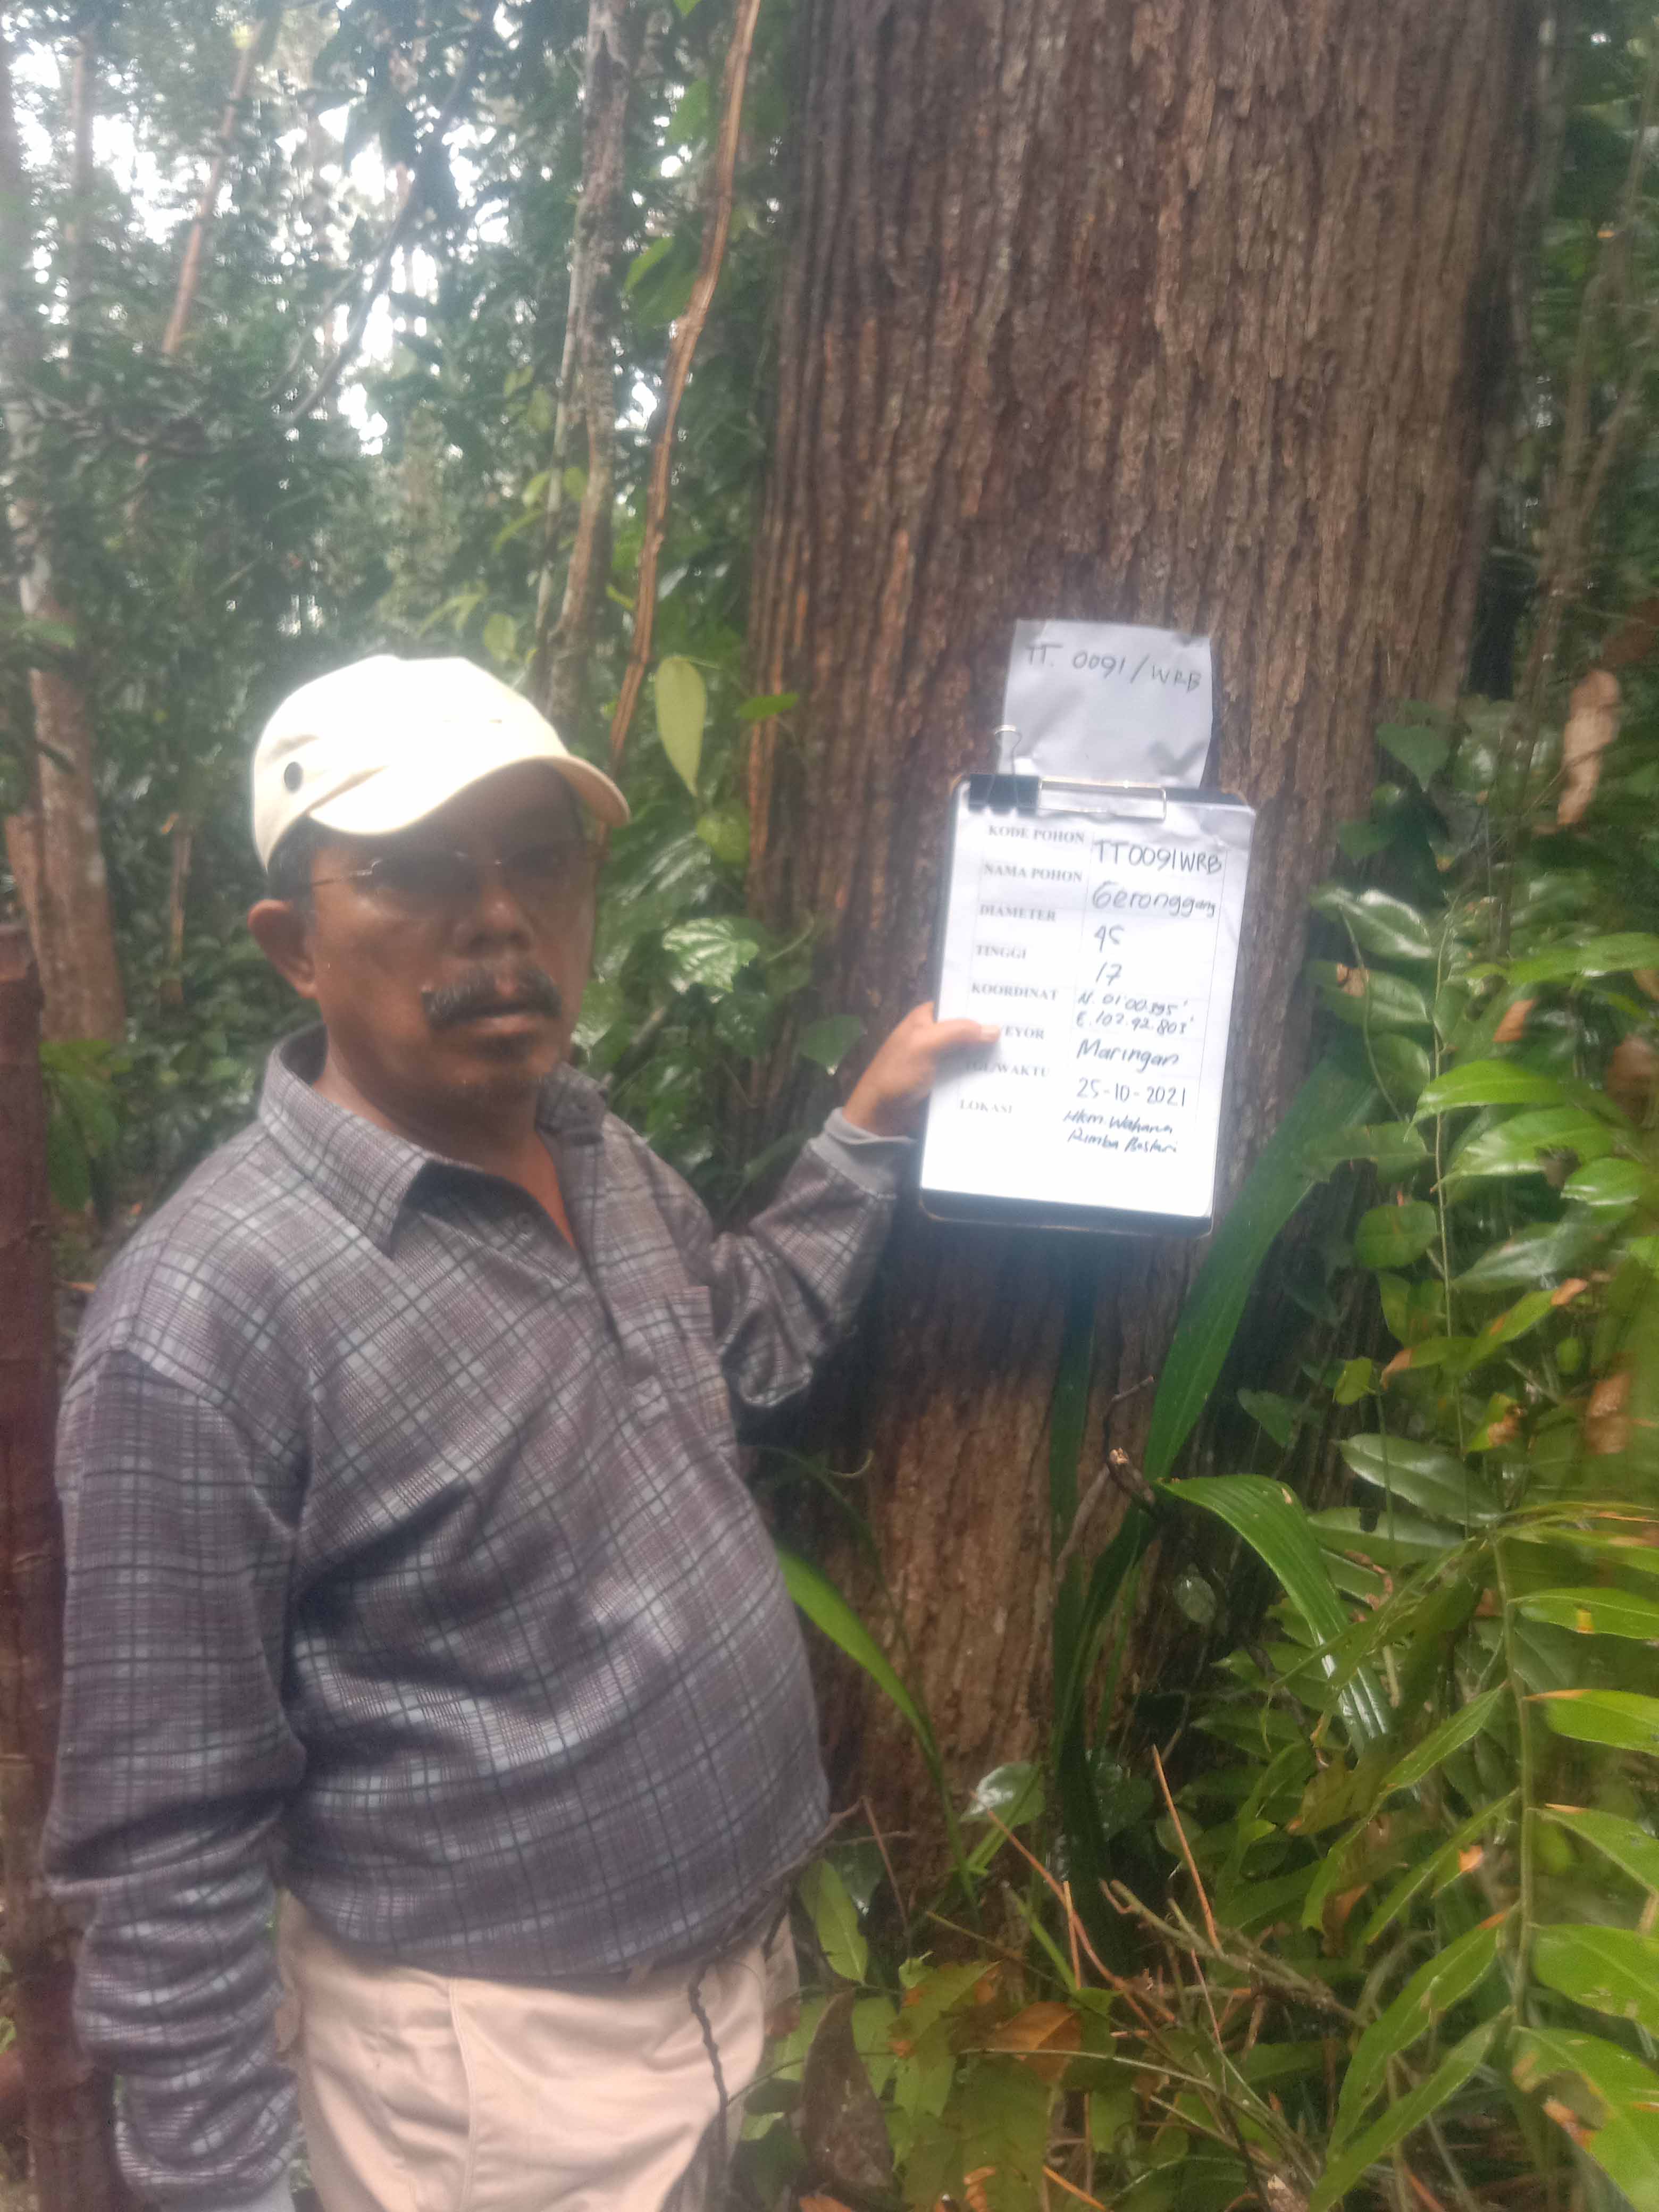 TT. 0091/WRB
KODE POHON TT0091WRB
NAMA POHON Geronggang
DIAMETER 45
TINGGI 17
KOORDINAT N. 01'00.395'
E. 102.92.803'
EYOR Maringan
TGL/WAKTU 25-10-2021
LOKASI Hkm. Wahana
Rimba Bestari